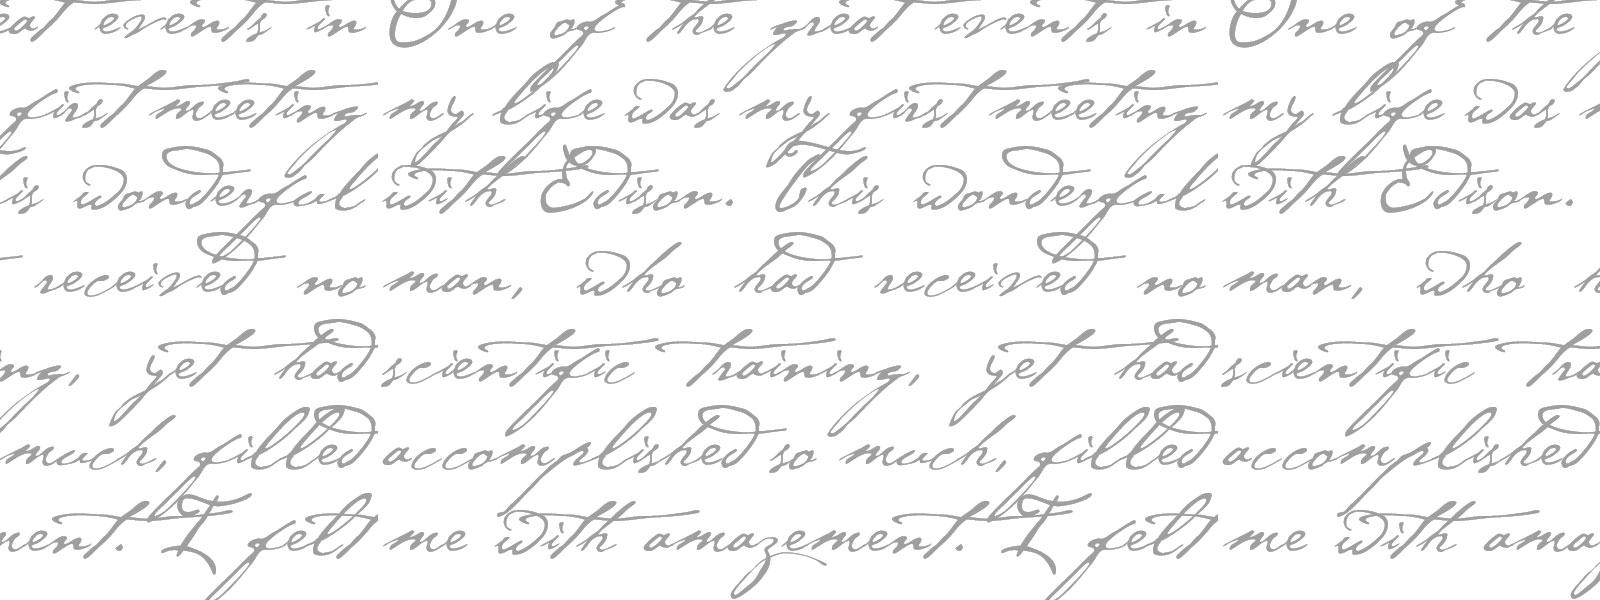 eat events in One of the great events in One of the
first meeting my life was my first meeting my life was
his wonderful with Edison. This wonderful with Edison.
received no man, who had received no man, who
ng, yet had scientific training, yet had scientific tra
much, filled accomplished so much, filled accomplished
ment. I felt me with amazement. I felt me with ama